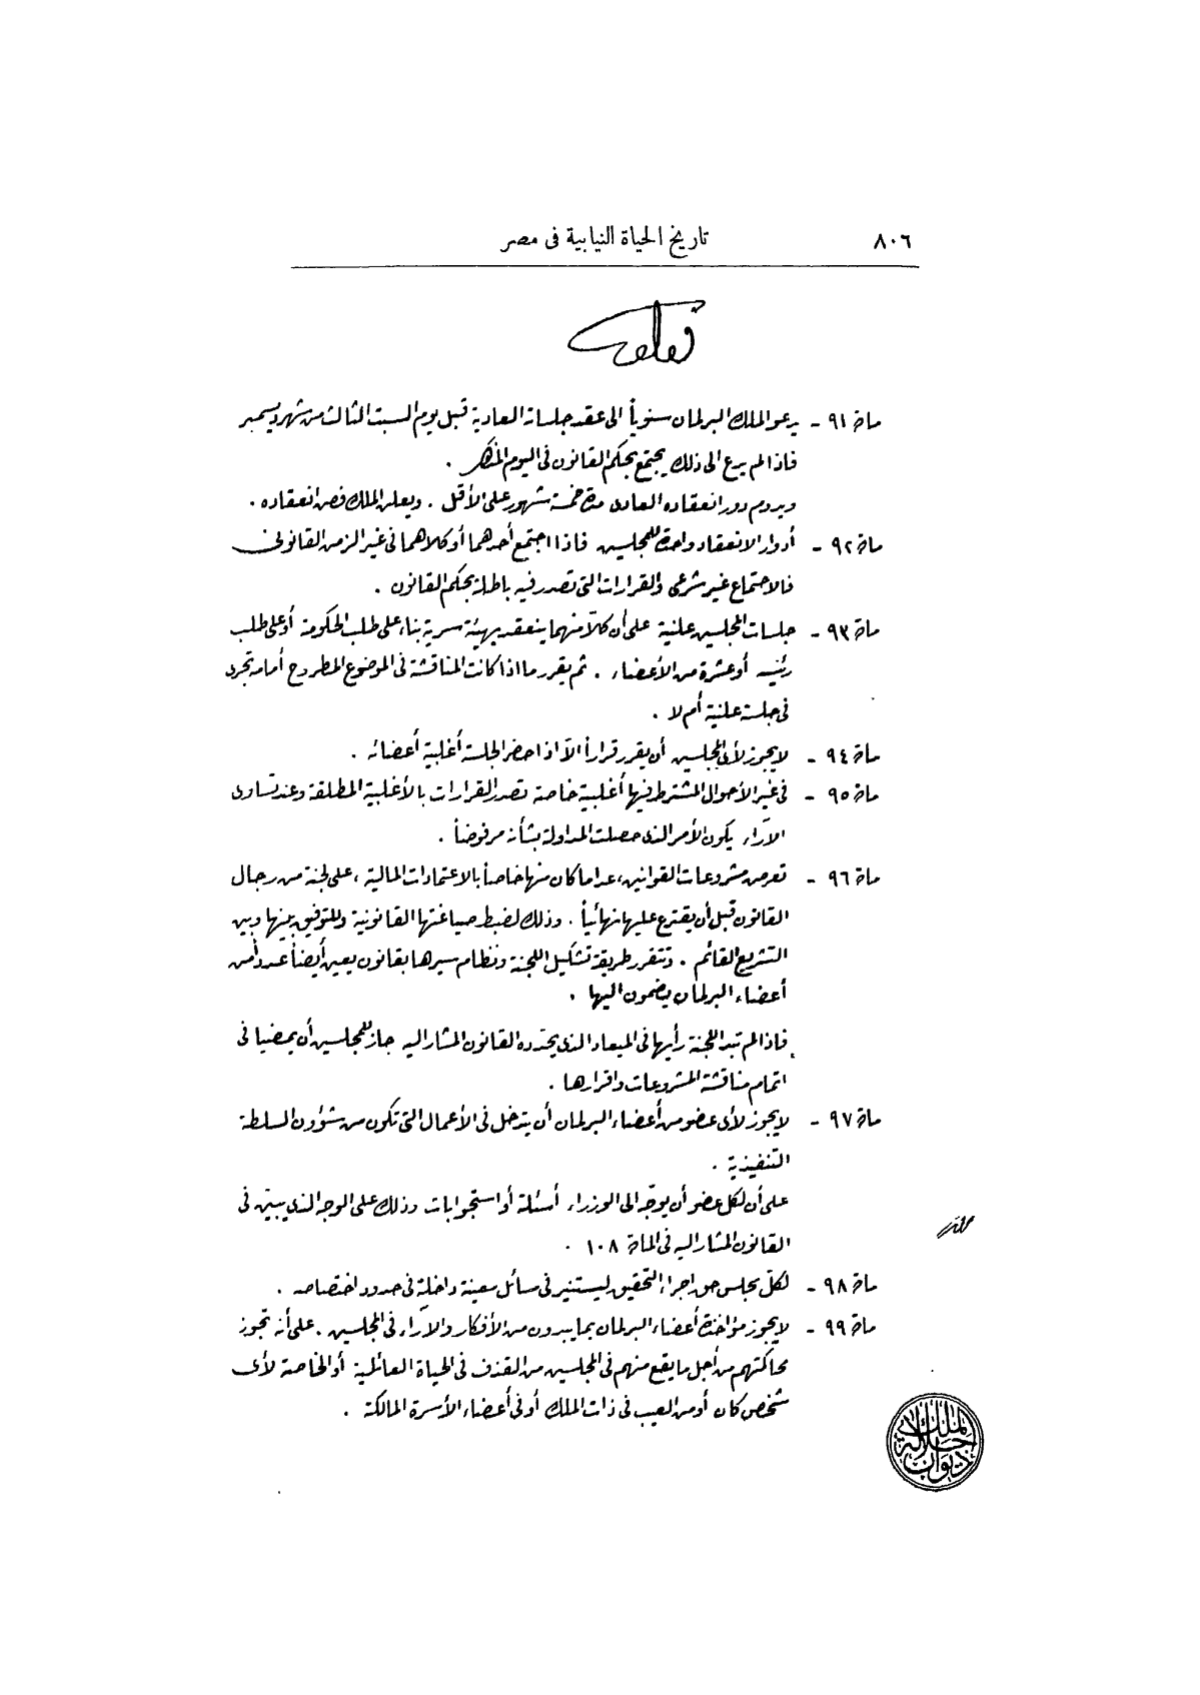 ٨٠٦
تاريخ الحياة النيابية فى مصر
مادة ٩١ - يدعو الملك البرلمان سنوياً الى عقد جلساته العادية قبل يوم السبت الثالث من شهر ديسمبر
فاذا لم يدع الى ذلك يجتمع بحكم القانون فى اليوم المذكور .
ويدوم دور انعقاده العادى مدة خمسة شهور على الأقل . ويعلن الملك فض انعقاده .
مادة ٩٢ - أدوار الانعقاد واحدة للمجلسين فاذا اجتمع أحدهما أو كلاهما فى غير الزمن القانونى
فالاجتماع غير شرعى والقرارات التى تصدر فيه باطلة بحكم القانون .
مادة ٩٣ - جلسات المجلسين علنية على أن كلاً منهما ينعقد بهيئة سرية بناء على طلب الحكومة أو على طلب
رئيسه أو عشرة من الأعضاء . ثم يقرر ما اذا كانت المناقشة فى الموضوع المطروح أمامه تجرى
فى جلسة علنية أم لا .
مادة ٩٤ - لا يجوز لأى المجلسين أن يقرر قراراً الاّ اذا حضر الجلسة أغلبية أعضائه .
مادة ٩٥ - فى غير الأحوال المشترط فيها أغلبية خاصة تصدر القرارات بالأغلبية المطلقة وعند تساوى
الآراء يكون الأمر الذى حصلت المداولة بشأنه مرفوضاً .
مادة ٩٦ - تعرض مشروعات القوانين، عدا ما كان منها خاصاً بالاعتمادات المالية ، على لجنة من رجال
القانون قبل أن يقترع عليها نهائياً . وذلك لضبط صياغتها القانونية وللتوفيق بينها وبين
التشريع القائم . وتتقرر طريقة تشكيل اللجنة ونظام سيرها بقانون يعين أيضاً عدداً من
أعضاء البرلمان يضمون اليها .
فاذا لم تبد اللجنة رأيها فى الميعاد الذى يحدّده القانون المشار اليه جاز للمجلسين أن يمضيا فى
اتمام مناقشة المشروعات واقرارها .
مادة ٩٧ - لا يجوز لأى عضو من أعضاء البرلمان أن يتدخل فى الأعمال التى تكون من شؤون السلطة
التنفيذية .
على أن لكل عضو أن يوجّه الى الوزراء أسئلة أو استجوابات وذلك على الوجه الذى يبيّن فى
القانون المشار اليه فى المادة ١٠٨ .
مادة ٩٨ - لكلّ مجلس حق اجراء التحقيق ليستنير فى مسائل معينة داخلة فى حدود اختصاصه .
مادة ٩٩ - لا يجوز مؤاخذة أعضاء البرلمان بما يبدون من الأفكار والآراء فى المجلسين . على أنه تجوز
محاكمتهم من أجل ما يقع منهم فى المجلسين من القذف فى الحياة العائلية أو الخاصة لأى
شخص كان أو من العيب فى ذات الملك أو فى أعضاء الأسرة المالكة .
ديوان جلالة الملك